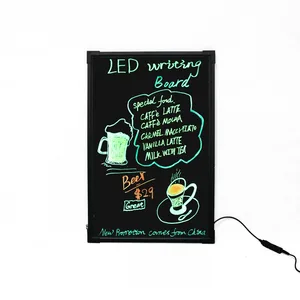 LED writing
Board
special food
CAFFÈ LATTE
CAFFÈ MOCHA
CARMEL MACCHIATO
VANILLA LATTE
MILK WITH TEA
Beer
$29
Great
New Promotion comes from China